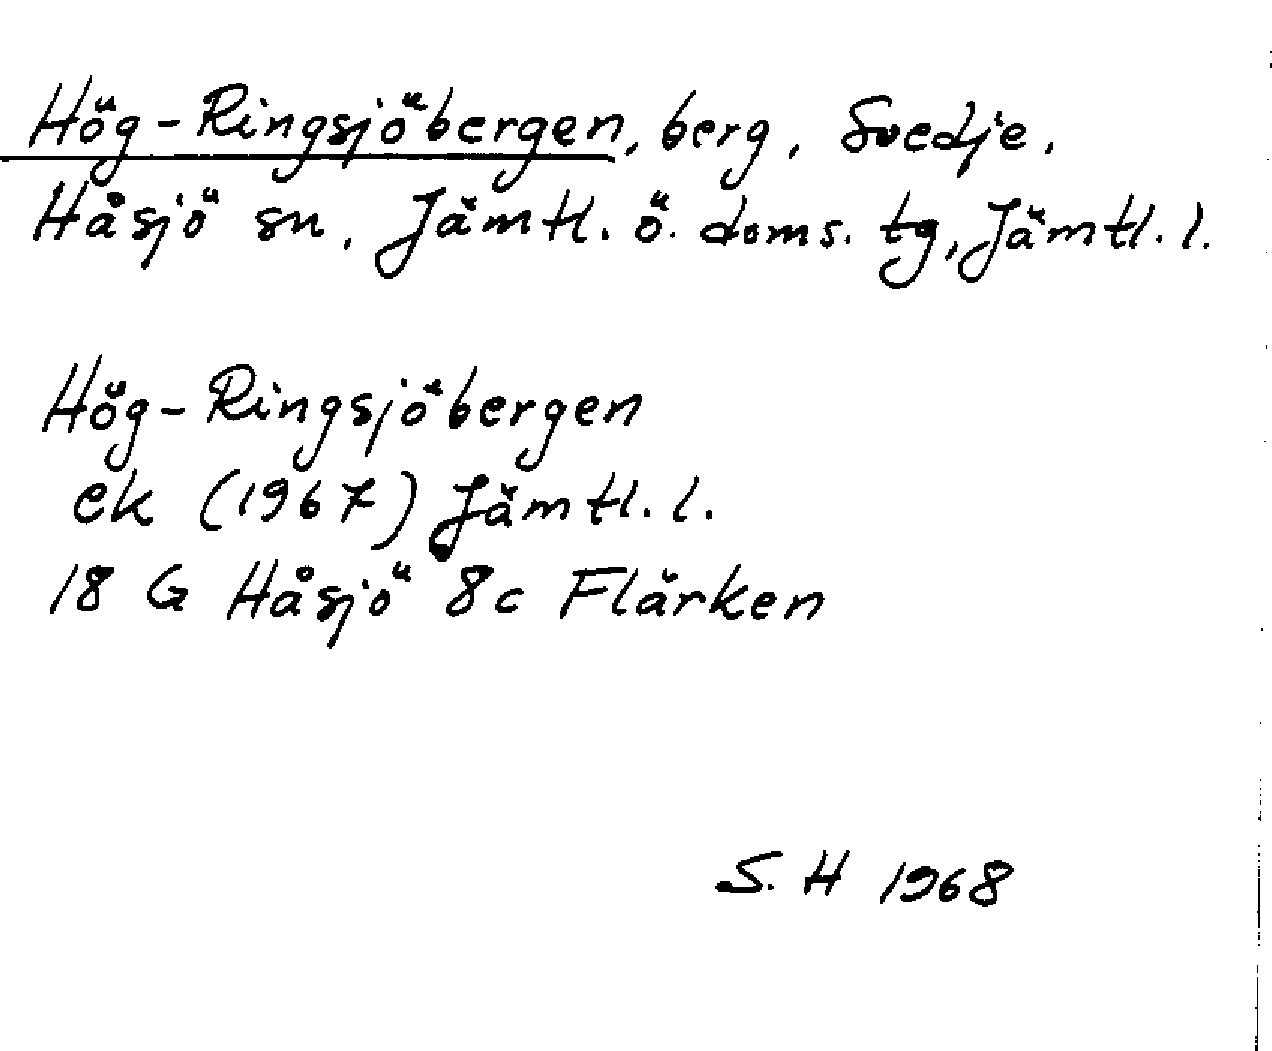 Hög-Ringsjöbergen, berg, Svedje,
Håsjö sn, Jämtl. ö. doms. tg, Jämtl. l.
Hög-Ringsjöbergen
ek (1967) Jämtl. l.
18 G Håsjö 8c Flärken
S. H 1968